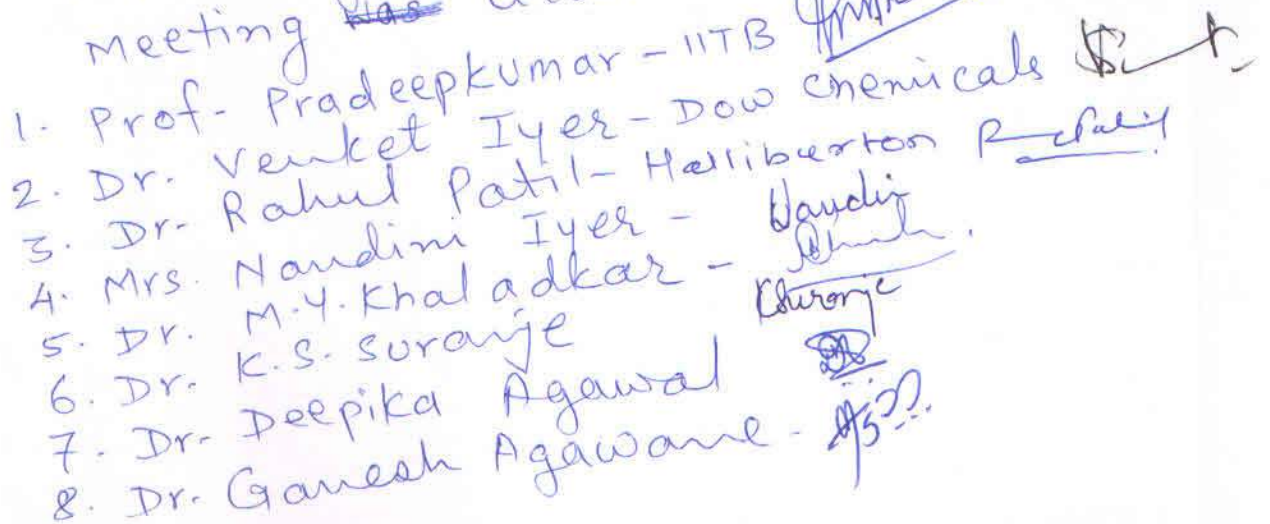 Meeting
1. Prof- Pradeepkumar - IITB
2. Dr. Venket Iyer - Dow chemicals
3. Dr- Rahul Patil - Halliburton R Patil
4. Mrs. Nandini Iyer - Nandin
5. Dr. M.Y. Khaladkar -
6. Dr. K.S. Suranje KSuranje
7. Dr- Deepika Agawal
8. Dr- Ganesh Agawane -